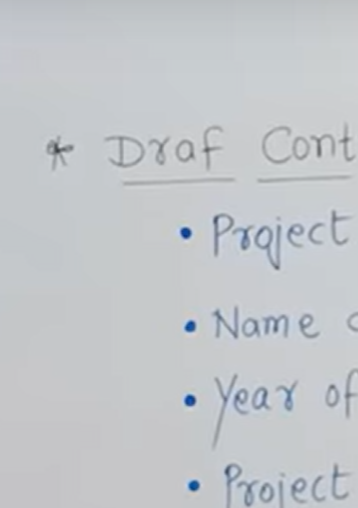 * Draf Cont
• Project
• Name
• Year of
• Project